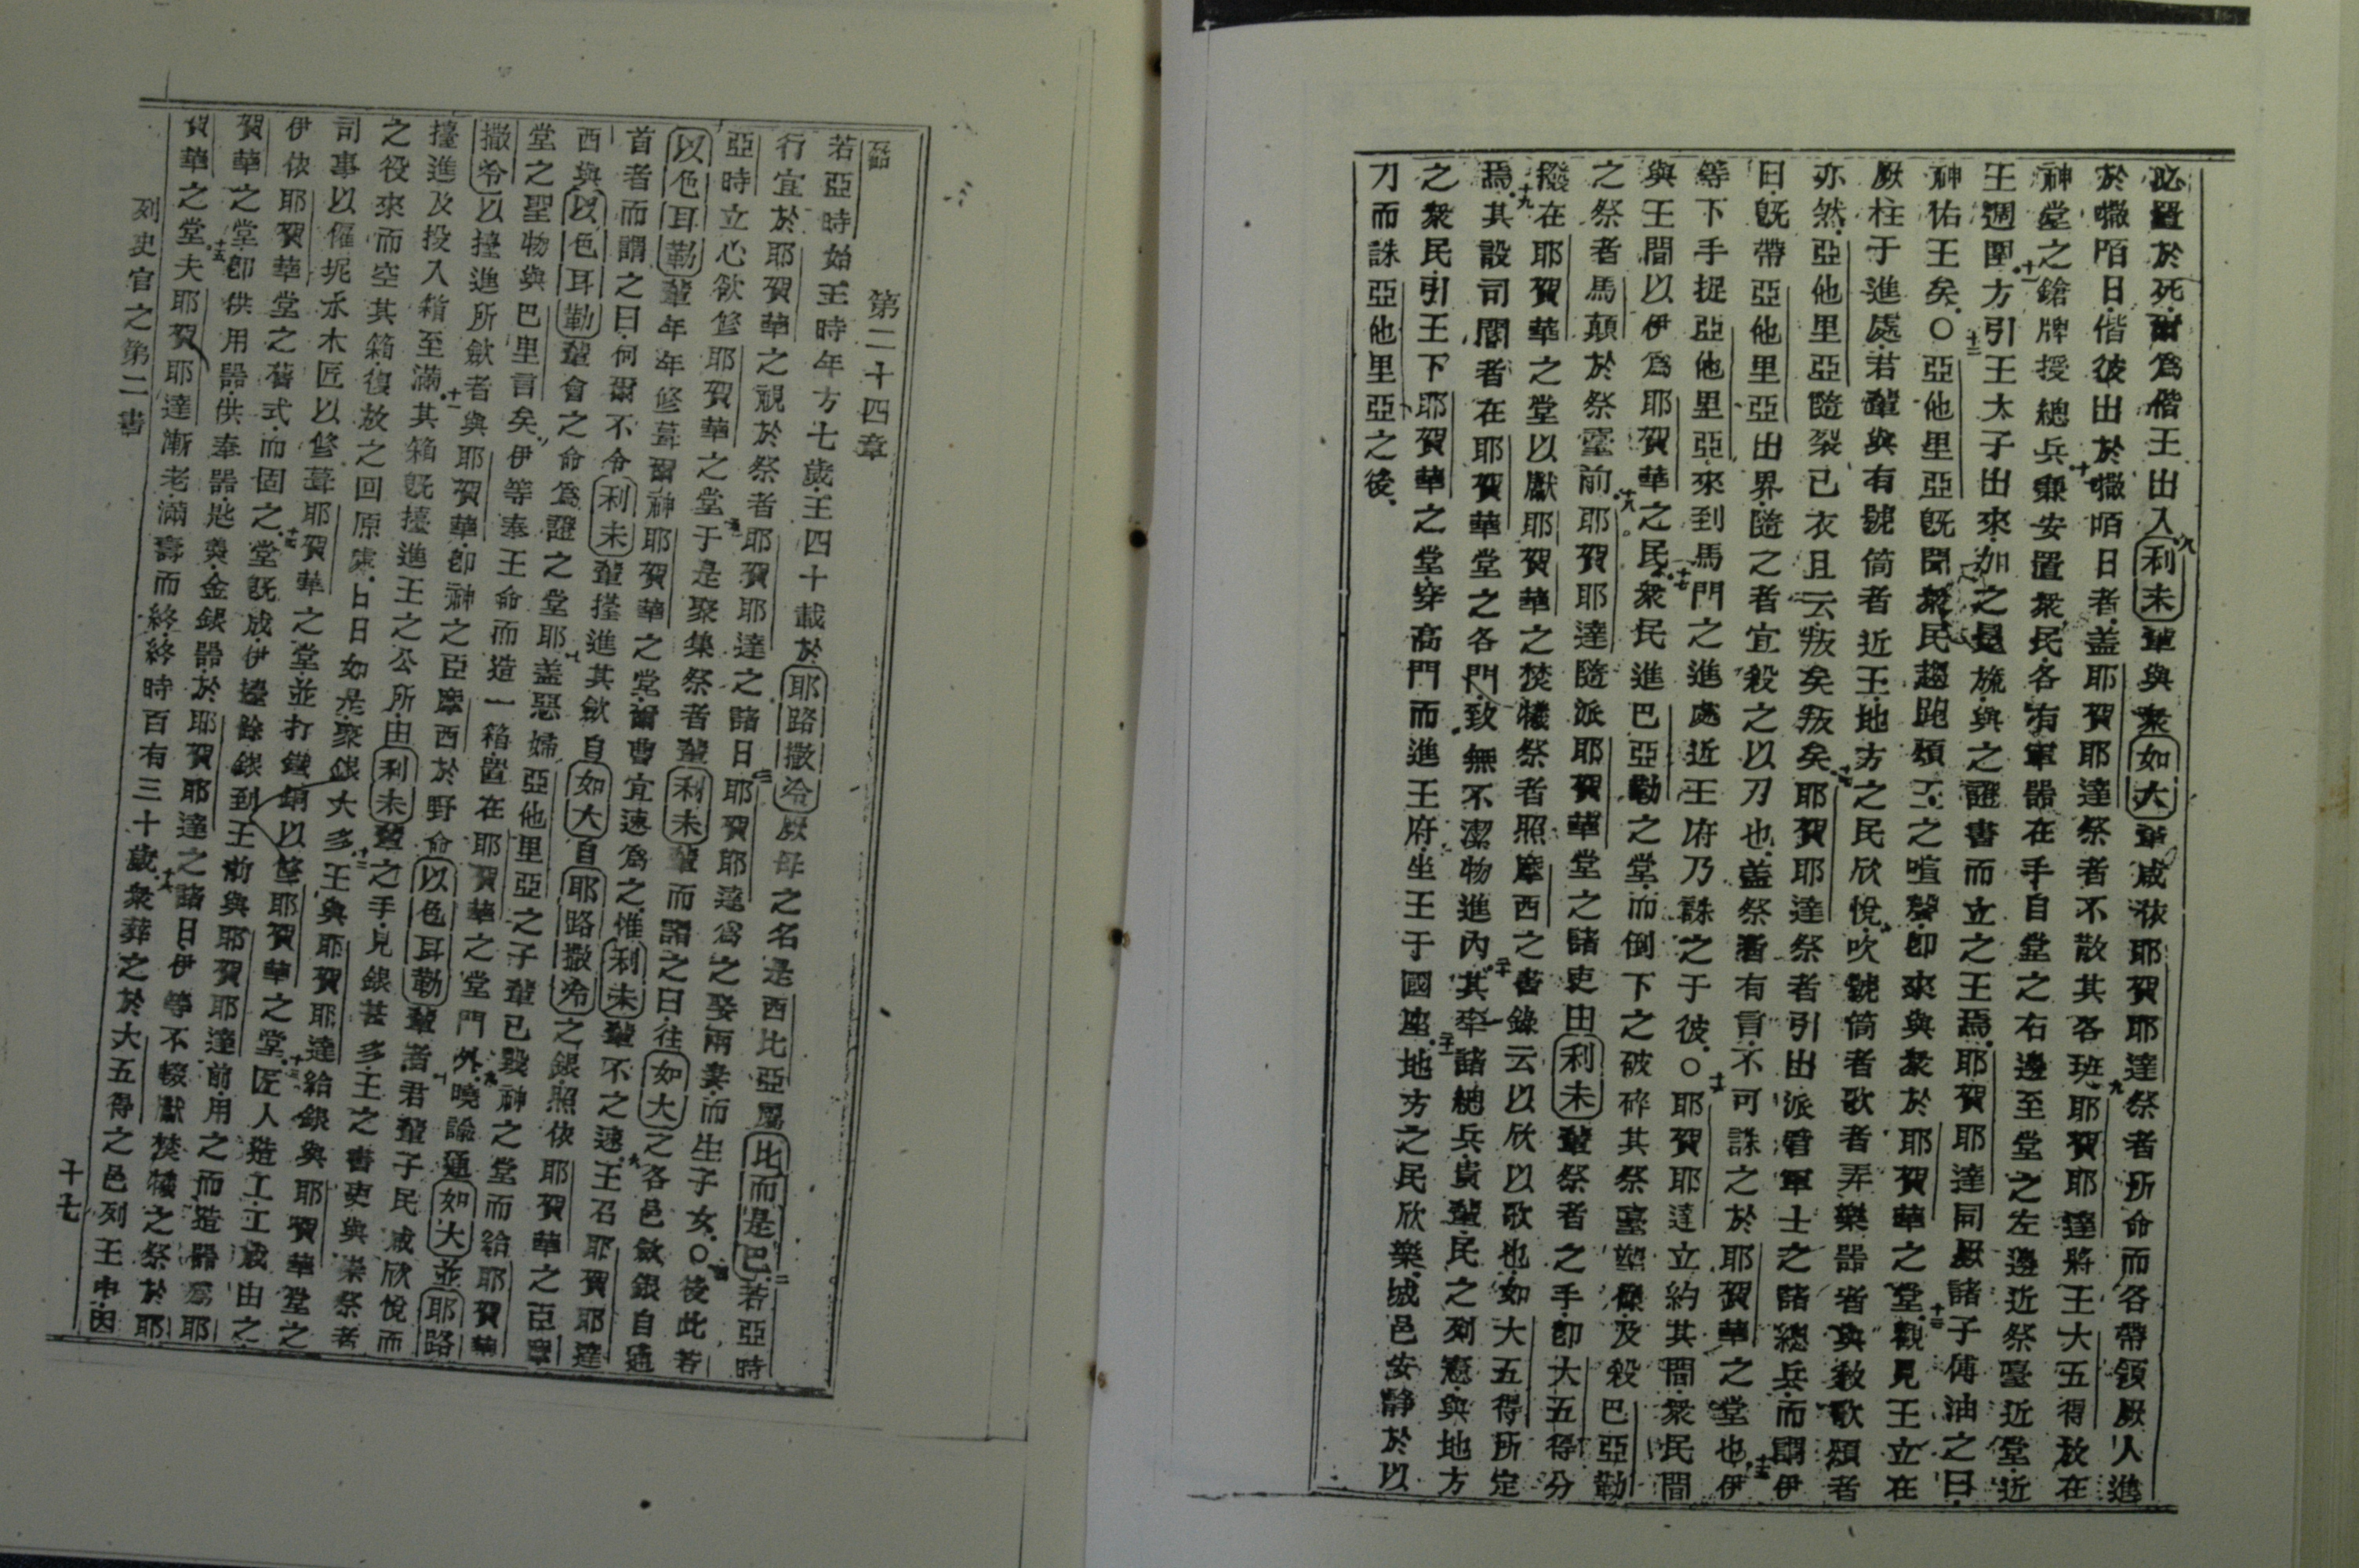 必置於死.爾爲偕王出入.九利未輩與衆如大輩咸依耶賀耶達祭者所命而各帶領厥人進
於囐陌日.偕彼出於囐陌日者.盖耶賀耶達祭者不散其各班.九耶賀耶達將王大五得放在
神堂之鎗牌授總兵輩.十安置衆民.各有軍器在手自堂之右邊至堂之左邊近祭臺近堂.近
王週圍.十一方引王太子出來.加之冕旒.與之證書而立之王焉.耶賀耶達同厥諸子傅油之曰.
神佑王矣.○十二亞他里亞旣聞衆民趨跑頌王之喧聲.卽來與衆於耶賀華之堂.十三觀見王立在
厥柱于進處.若輩與有號筒者近王.地方之民欣悅.吹號筒者歌者弄樂器者與教歌頌者
亦然.亞他里亞隨裂己衣且云.叛矣叛矣.十四耶賀耶達祭者引出派管軍士之諸總兵.而謂伊
曰旣帶亞他里亞出界.隨之者宜殺之以刀也.盖祭者有言.不可誅之於耶賀華之堂也.十五伊
等下手捉亞他里亞.來到馬門之進處近王府乃誅之于彼.○十六耶賀耶達立約其間.衆民間
與王間以伊爲耶賀華之民.十七衆民進巴亞勒之堂.而倒下之破碎其祭臺塑像.及殺巴亞勒
之祭者馬顛於祭臺前.十八耶賀耶達隨派耶賀華堂之諸吏由利未輩祭者之手.卽大五得分
撥在耶賀華之堂以獻耶賀華之焚犧祭者照摩西之書錄云以欣以歌也.如大五得所定
焉.十九其設司閽者在耶賀華堂之各門.致無不潔物進內.二十其率諸總兵.貴輩.民之列憲.與地方
之衆民.引王下耶賀華之堂.穿高門而進王府.坐王于國座.二十一地方之民欣樂.城邑安靜於以
刀而誅亞他里亞之後.
第二十四章
若亞時始王時年方七歲.王四十載於耶路撒冷厥母之名是西比亞屬比而是巴.二若亞時
行宜於耶賀華之視於祭者耶賀耶達之諸日.三耶賀耶達爲之娶兩妻.而生子女.○四後此若
亞時立心欲修耶賀華之堂.五于是聚集祭者輩利未輩而謂之曰.往如大之各邑歛銀自通
以色耳勒輩年年修葺爾神耶賀華之堂.爾曹宜速爲之.惟利未輩不之速.六王召耶賀耶達
首者而謂之曰.何爾不令利未輩擡進其歛自如大自耶路撒冷之銀.照依耶賀華之臣摩
西與以色耳勒輩會之命爲證之堂耶.七盖惡婦亞他里亞之子輩已毀神之堂而給耶賀華
堂之聖物與巴里言矣.八伊等奉王命而造一箱.置在耶賀華之堂門外.九曉諭通如大並耶路
撒冷以擡進所歛者與耶賀華.卽神之臣摩西於野命以色耳勒輩者.十君輩子民咸欣悅而
擡進及投入箱至滿.十一其箱旣擡進王之公所.由利未輩之手.見銀甚多.王之書吏與崇祭者
之役來而空其箱.復放之回原處.日日如是.聚銀大多.十二王與耶賀耶達給銀與耶賀華堂之
司事以僱坭水木匠以修葺耶賀華之堂.並打鐵銅以修耶賀華之堂.十三匠人造工.工成由之.
伊依耶賀華堂之舊式.而固之.十四堂旣成.伊擡餘銀到王前與耶賀耶達前.用之而造器爲耶
賀華之堂.卽供用器.供奉器.匙羹.金銀器.於耶賀耶達之諸日.伊等不輟獻焚犧之祭於耶
賀華之堂夫.十五耶賀耶達漸老.滿壽而終.終時百有三十歲.十六衆葬之於大五得之邑列王中.因
列史官之第二書
十七